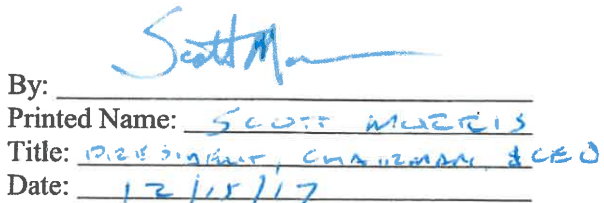 By: Scott Mo
Printed Name: SCOTT MORRIS
Title: PRESIDENT, CHAIRMAN, & CEO
Date: 12/15/17